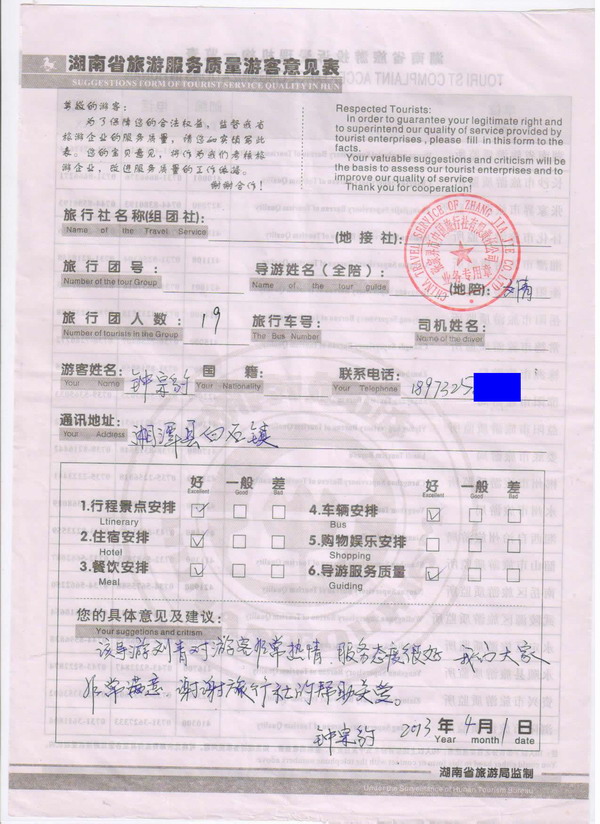 湖南省旅游服务质量游客意见表
SUGGESTIONS FORM OF TOURIST SERVICE QUALITY IN HUN
尊敬的游客:
为了保障您的合法权益,监督我省
旅游企业的服务质量,请您如实填写此
表。您的宝贵意见,将作为我们考核旅
游企业,改进服务质量的工作依据。
谢谢合作!
Respected Tourists:
In order to guarantee your legitimate right and
to superintend our quality of service provided by
tourist enterprises, please fill in this form to the
facts.
Your valuable suggestions and criticism will be
the basis to assess our tourist enterprises and to
improve our quality of service
Thank you for cooperation!
旅行社名称(组团社): (地接社):
Name of the Travel Service
CHINA TRAVEL SERVICE OF ZHANG JIA JIE CO., LTD
业务专用章
旅行团号: 导游姓名(全陪): (地陪):
Number of the tour Group Name of the tour guide
旅行团人数: 19 旅行车号: 司机姓名:
Number of tourists in the Group The Bus Number Name of the driver
游客姓名: 钟宗豹 国籍: 联系电话: 1897325
Your Name Your Nationality Your Telephone
通讯地址: 湘潭县白石镇
Your Address
好 一般 差 好 一般 差
Excellent Good Bad Excellent Good Bad
1.行程景点安排 4.车辆安排
Ltinerary Bus
2.住宿安排 5.购物娱乐安排
Hotel Shopping
3.餐饮安排 6.导游服务质量
Meal Guiding
您的具体意见及建议:
Your suggetions and critism
该导游刘青对游客非常热情,服务态度很好 我们大家
非常满意,谢谢旅行社的帮助支
钟宗豹 2013 年 4 月 1 日
Year month date
湖南省旅游局监制
Under the Surveillance of Hunan Tourism Bureau